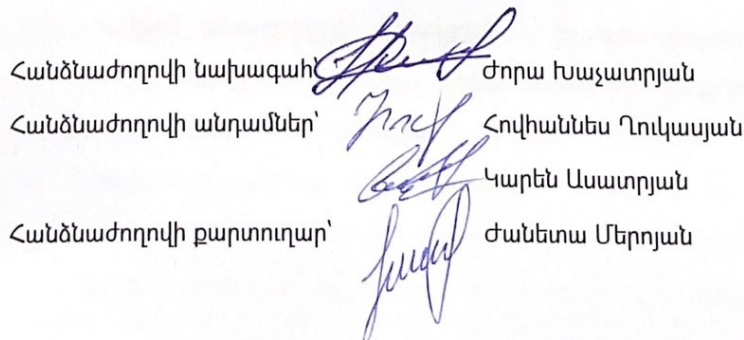 Հանձնաժողովի նախագահ՝ Ժորա Խաչատրյան
Հանձնաժողովի անդամներ՝ Հովհաննես Ղուկասյան
Կարեն Ասատրյան
Հանձնաժողովի քարտուղար՝ Ժանետա Մերոյան